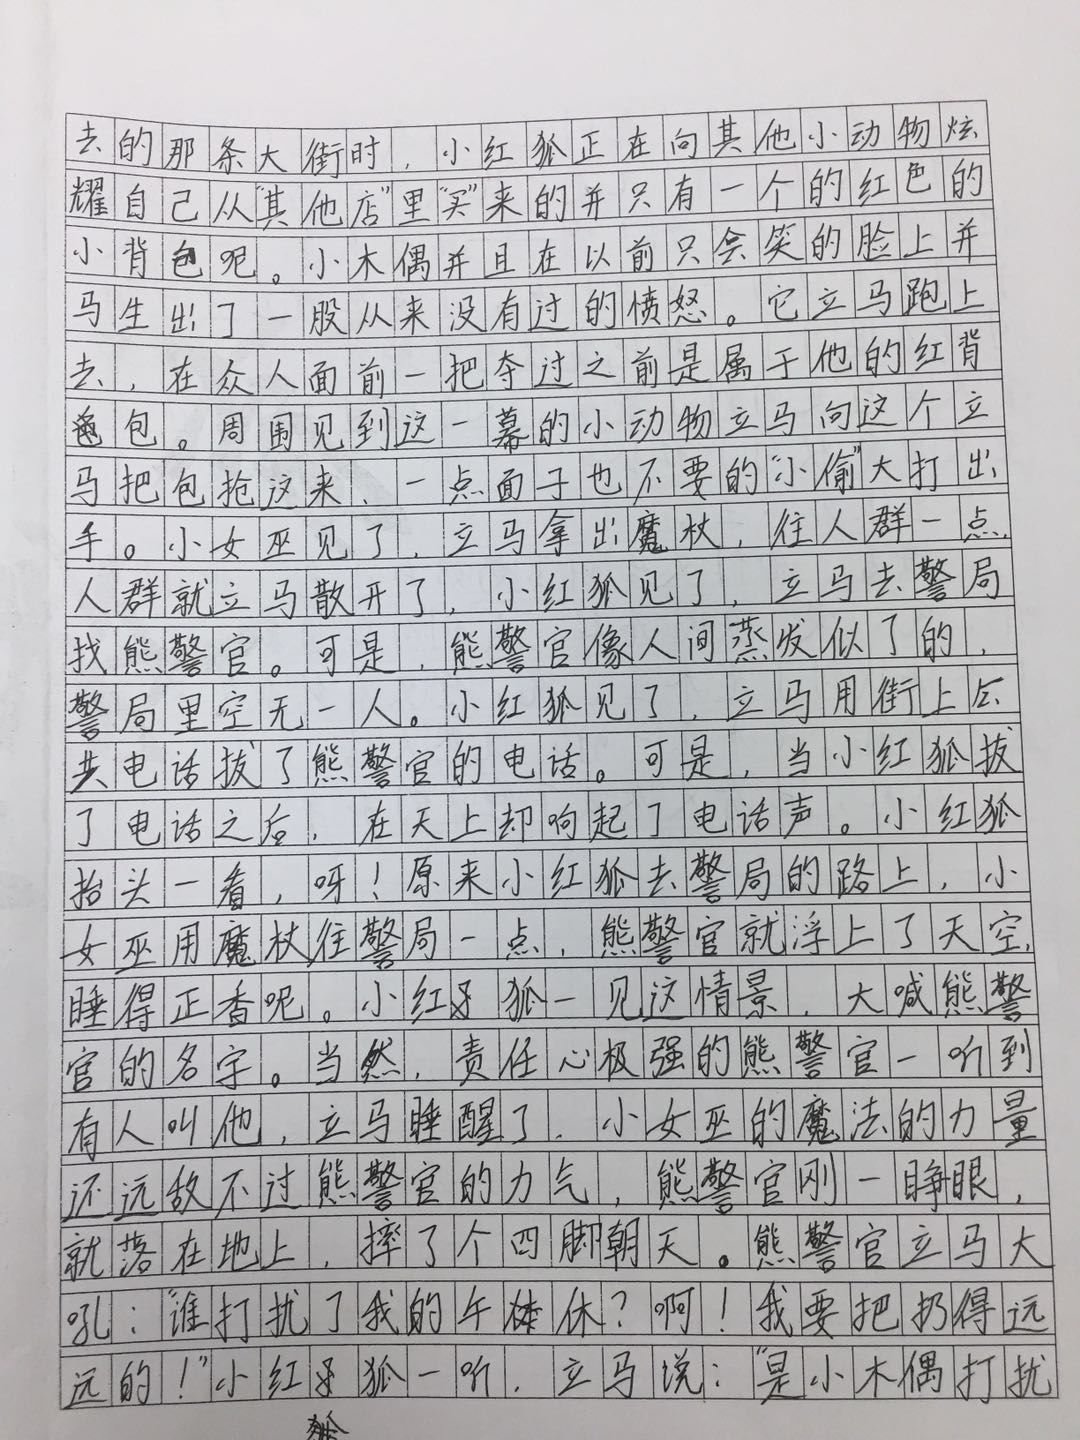 去的那条大街时，小红狐正在向其他小动物炫
耀自己从"其他店"里"买"来的并只有一个的红色的
小背包呢。小木偶并且在以前只会笑的脸上并
马生出了一股从来没有过的愤怒。它立马跑上
去，在众人面前一把夺过之前是属于他的红背
包。周围见到这一幕的小动物立马向这个立
马把包抢这来、一点面子也不要的"小偷"大打出
手。小女巫见了，立马拿出魔杖，往人群一点，
人群就立马散开了，小红狐见了，立马去警局
找熊警官。可是，熊警官像人间蒸发似了的，
警局里空无一人。小红狐见了，立马用街上公
共电话拔了熊警官的电话。可是，当小红狐拔
了电话之后，在天上却响起了电话声。小红狐
抬头一看，呀！原来小红狐去警局的路上，小
女巫用魔杖往警局一点，熊警官就浮上了天空，
睡得正香呢。小红狐一见这情景，大喊熊警
官的名字。当然，责任心极强的熊警官一听到
有人叫他，立马睡醒了，小女巫的魔法的力量
还远敌不过熊警官的力气，熊警官刚一睁眼，
就落在地上，摔了个四脚朝天。熊警官立马大
吼："谁打扰了我的午休？啊！我要把扔得远
远的！"小红狐一听，立马说："是小木偶打扰
狐